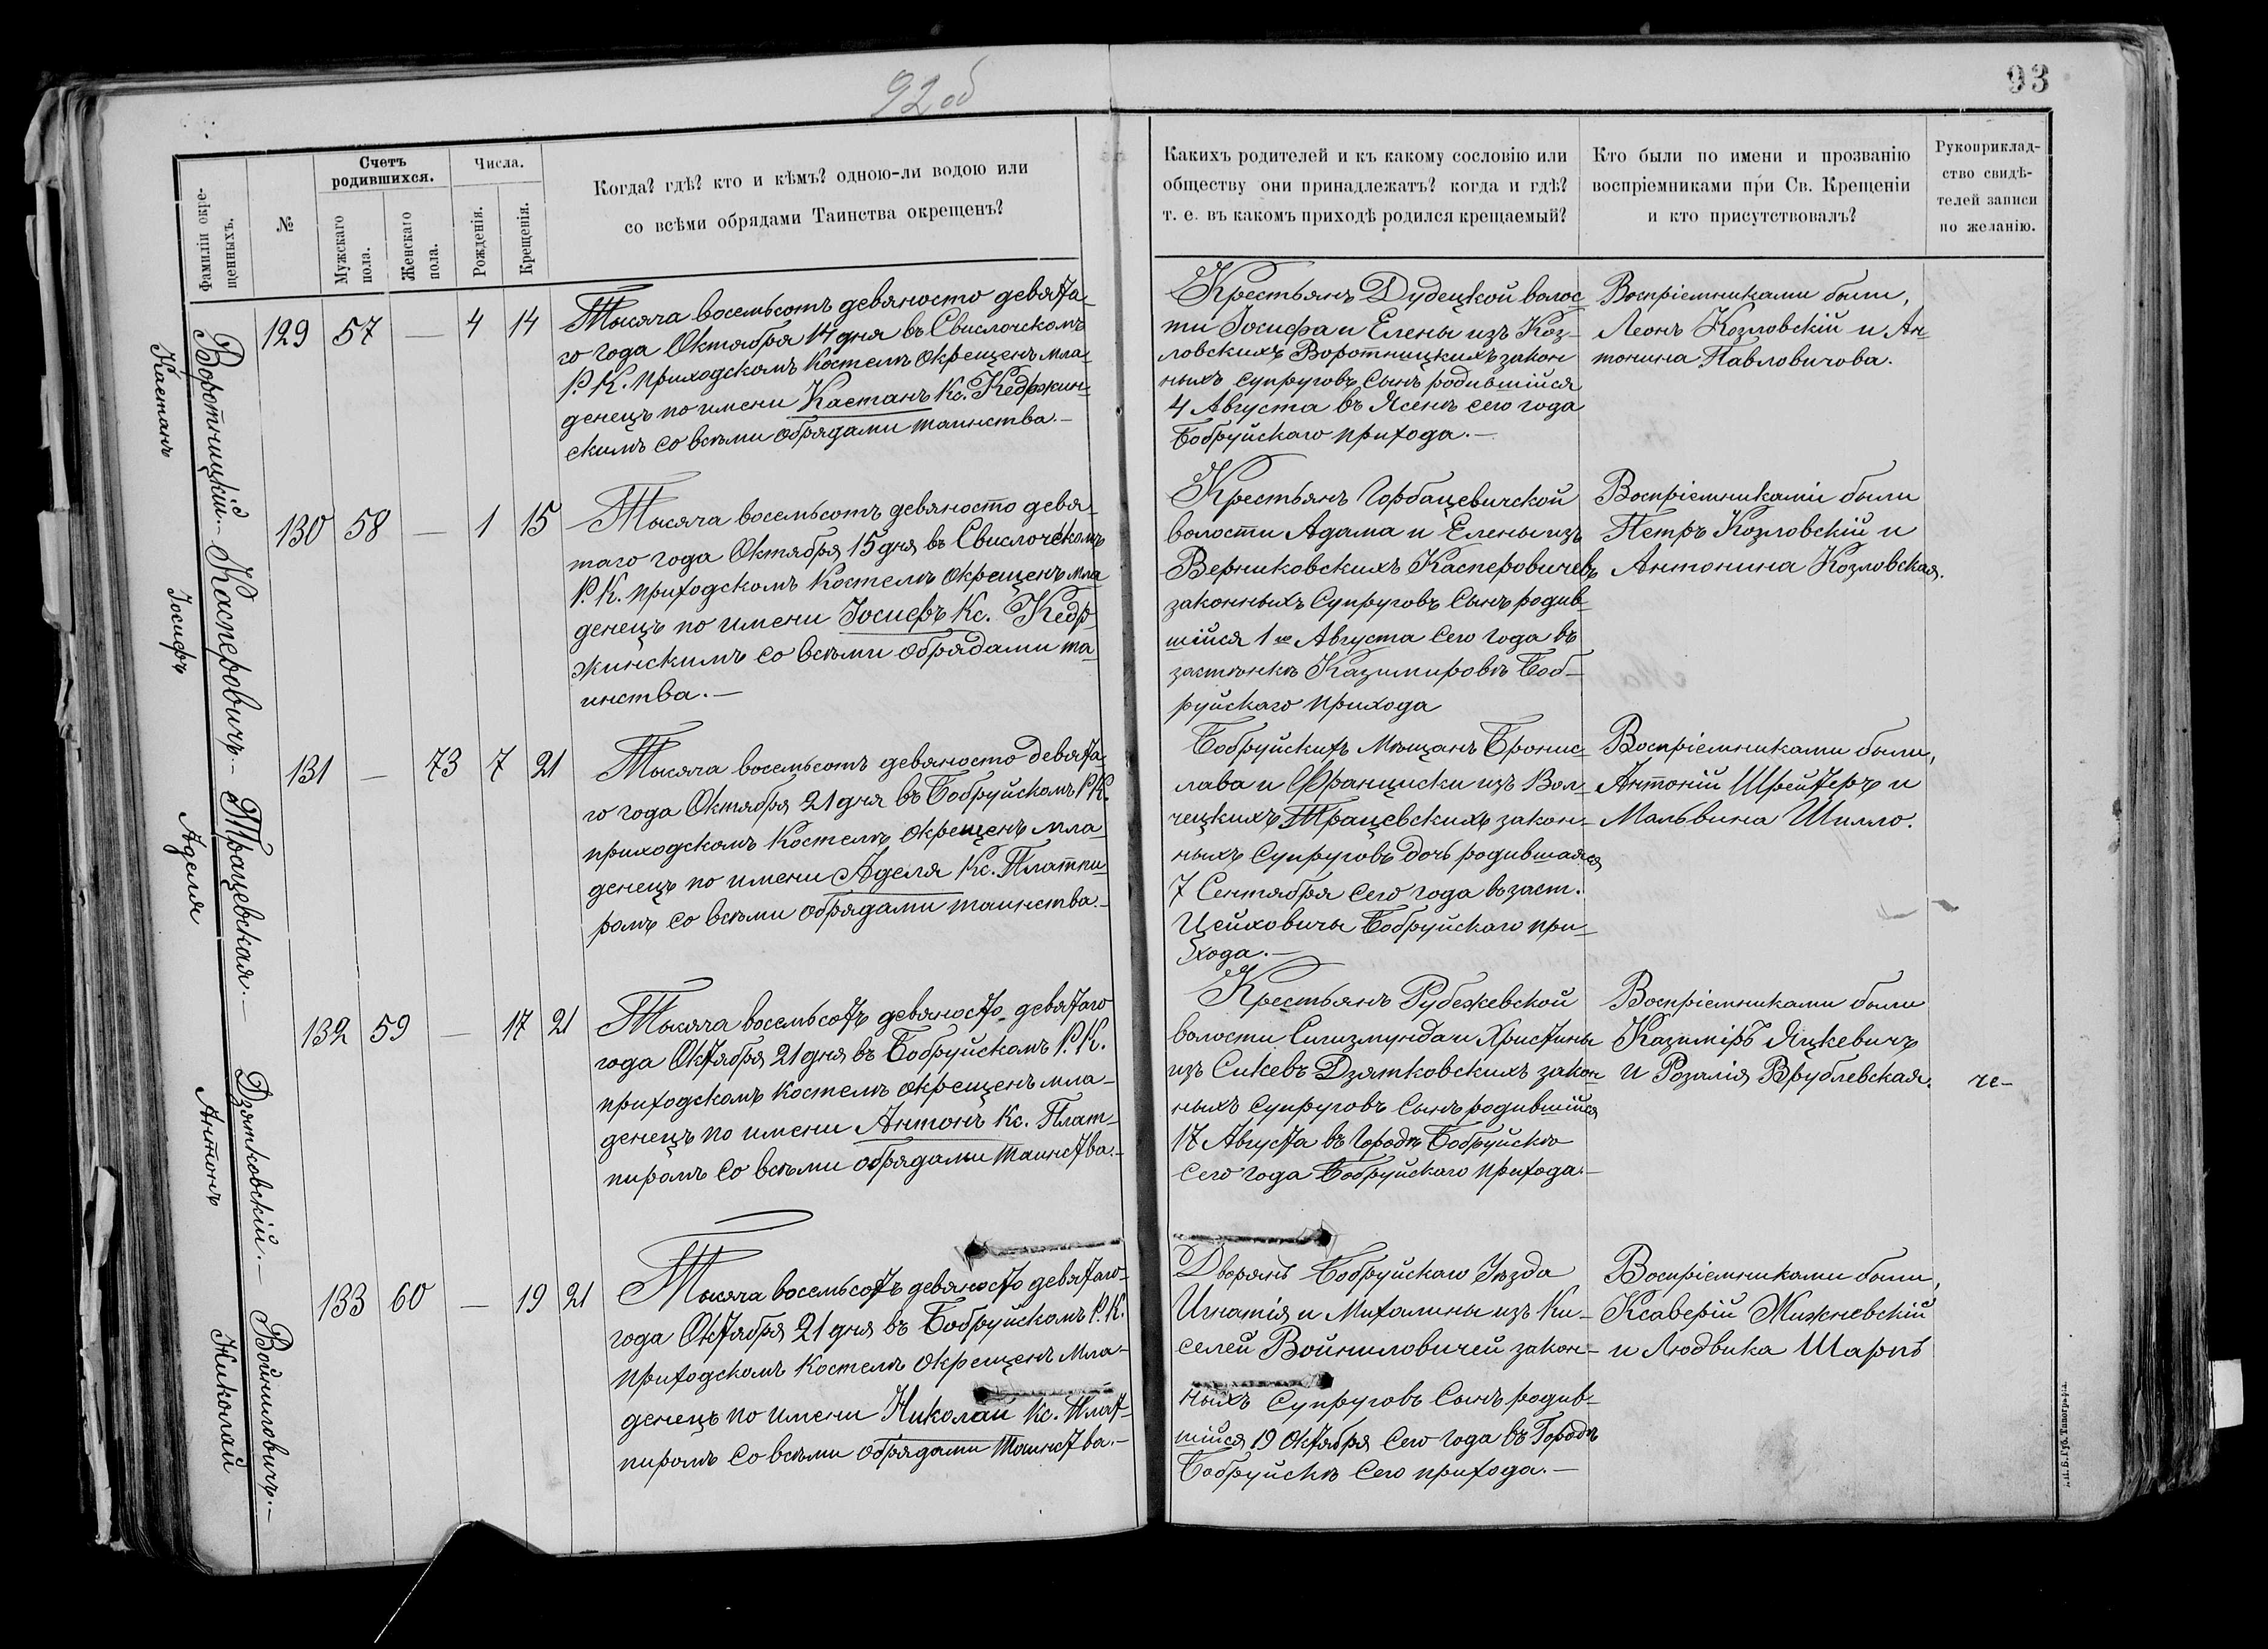 92 об
93
Фамиліи окре-
щенныхъ.
№
Счетъ
родившихся.
Мужскаго
пола.
Женскаго
пола.
Числа.
Рожденія.
Крещенія.
Когда? гдѣ? кто и кѣмъ? одною-ли водою или
со всѣми обрядами Таинства окрещенъ?
Какихъ родителей и къ какому сословію или
обществу они принадлежатъ? когда и гдѣ?
т. е. въ какомъ приходѣ родился крещаемый?
Кто были по имени и прозванію
воспріемниками при Св. Крещеніи
и кто присутствовалъ?
Рукоприклад-
ство свидѣ-
телей записи
по желанію.
Воротницкій.-
Каетанъ
129 57 — 4 14
Тысяча восемьсотъ девяносто девята-
го года Октября 14 дня въ Свислочскомъ
Р. К. приходскомъ костелѣ окрещенъ мла-
денецъ по имени Каетанъ Кс. Кедржин-
скимъ со всѣми обрядами таинства.-
Крестьянъ Дудецкой волос-
ти Іосифа и Елены изъ Коз-
ловскихъ Воротницкихъ закон
ныхъ супруговъ сынъ родившійся
4 Августа въ Ясенѣ сего года
Бобруйскаго прихода.-
Воспріемниками были,
Леонъ Козловскій и Ан-
тонина Павловичова.
Касперовичъ.-
Іосифъ
130 58 — 1 15
Тысяча восемьсотъ девяносто девя-
таго года Октября 15 дня въ Свислочскомъ
Р. К. приходскомъ костелѣ окрещенъ мла-
денецъ по имени Іосифъ Кс. Кедр-
жинскимъ со всѣми обрядами та-
инства.-
Крестьянъ Горбацевичской
волости Адама и Елены изъ
Верниковскихъ Касперовичевъ
законныхъ супруговъ сынъ родив-
шійся 1 го Августа сего года въ
застѣнкѣ Казимировѣ Боб-
руйскаго прихода
Воспріемниками были
Петръ Козловскій и
Антонина Козловская.
Трацевская.-
Аделя
131 — 73 7 21
Тысяча восемьсотъ девяносто девята-
го года Октября 21 дня въ Бобруйскомъ Р.К.
приходскомъ костелѣ окрещенъ мла-
денецъ по имени Аделя Кс. Платпи-
ромъ со всѣми обрядами таинства.-
Бобруйскихъ Мѣщанъ Бронис-
лава и Франциски изъ Вол-
чецкихъ Трацевскихъ закон-
ныхъ супруговъ дочь родившаяся
7 Сентября сего года въ заст.
Цейховичы Бобруйскаго при-
хода.-
Воспріемниками были,
Антоній Шрейтеръ и
Мальвина Шилло.
Дзятковскій.-
Антонъ
132 59 — 17 21
Тысяча восемьсотъ девяносто девятаго
года Октября 21 дня въ Бобруйскомъ Р.К.
приходскомъ костелѣ окрещенъ мла-
денецъ по имени Антонъ Кс. Плат-
пиромъ со всѣми обрядами таинства.-
Крестьянъ Рубежевской
волости Сигизмунда и Христины
изъ Сикевъ Дзятковскихъ закон-
ныхъ супруговъ сынъ родившійся
17 Августа въ городѣ Бобруйскѣ
сего года Бобруйскаго прихода.-
Воспріемниками были
Казиміръ Яцкевичъ
и Розалія Врублевская.
Войниловичъ.-
Николай
133 60 — 19 21
Тысяча восемьсотъ девяносто девятаго
года Октября 21 дня въ Бобруйскомъ Р.К.
приходскомъ костелѣ окрещенъ мла-
денецъ по имени Николай Кс. Плат-
пиромъ со всѣми обрядами таинства.-
Дворянъ Бобруйскаго Уѣзда
Игнатія и Михалины изъ Ки-
селей Войниловичей закон-
ныхъ супруговъ сынъ родив-
шійся 19 Октября сего года въ городѣ
Бобруйскѣ сего прихода.-
Воспріемниками были,
Ксаверій Жижневскій
и Людвика Шарпѣ